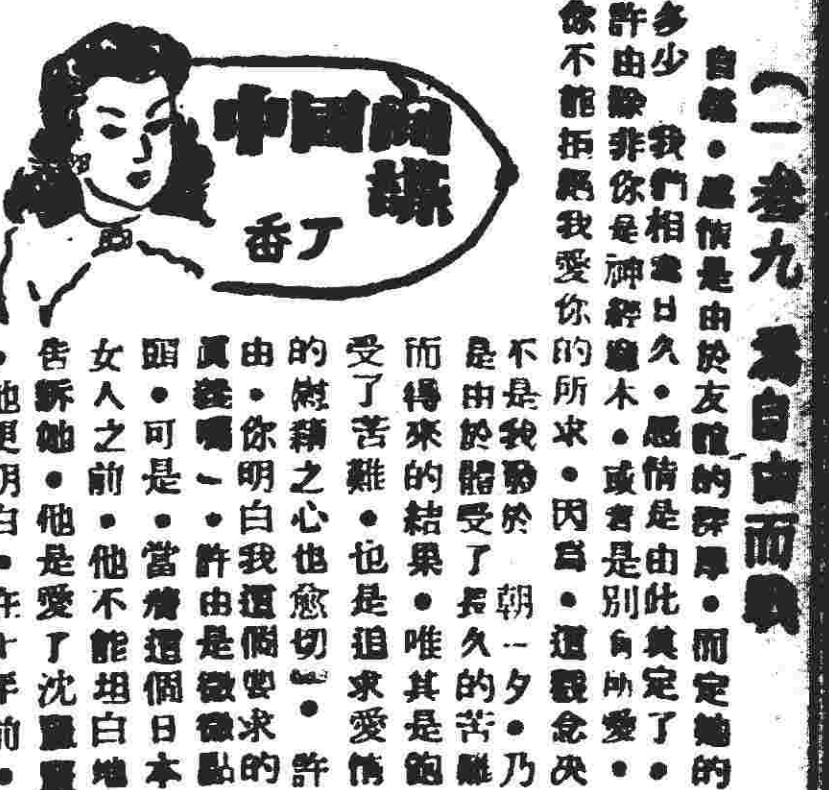 （一卷九 為自由而戰
自然●感情是由於友誼的深厚●而定她的
多少 我們相處日久●感情是由此其定了●
許由除非你是神經麻木●或者是別有所愛●
你不能拒絕我愛你的所求●因為●這觀念決
中國間
諜
香丁
不是我動於 朝一夕●乃
是由於體受了長久的苦難
而得來的結果●唯其是飽
受了苦難●也是追求愛情
的之心也愈切●許
由●你明白我這個要求的
真嗎●許由是微微點
頭●可是●當着這個日本
女人之前●他不能坦白地
告訴她●他是愛了沈
●他更明白●在十年前●